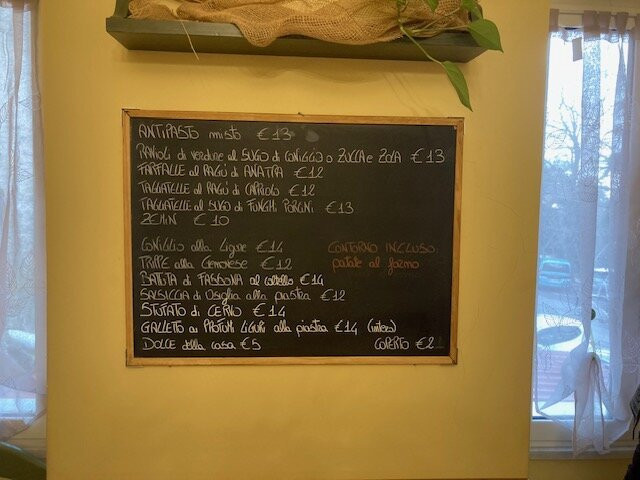 ANTIPASTO misto €13
RAVIOLI di verdure al SUGO di CONIGLIO o ZUCCA e ZOLA €13
FARFALLE al RAGÚ di ANATRA €12
TAGLIATELLE al RAGÚ di CAPRIOLO €12
TAGLIATELLE al SUGO di FUNGHI PORCINI €13
ZEMIN €10
CONIGLIO alla Ligure €14
TRIPPE alla Genovese €12
BATTUTA di FASSONA al coltello €14
SALSICCIA di Osiglia alla piastra €12
STUFATO di CERVO €14
GALLETTO ai PROFUMI LIGURI alla piastra €14 (intero)
DOLCE della casa €5
CONTORNO INCLUSO:
patate al forno
COPERTO €2